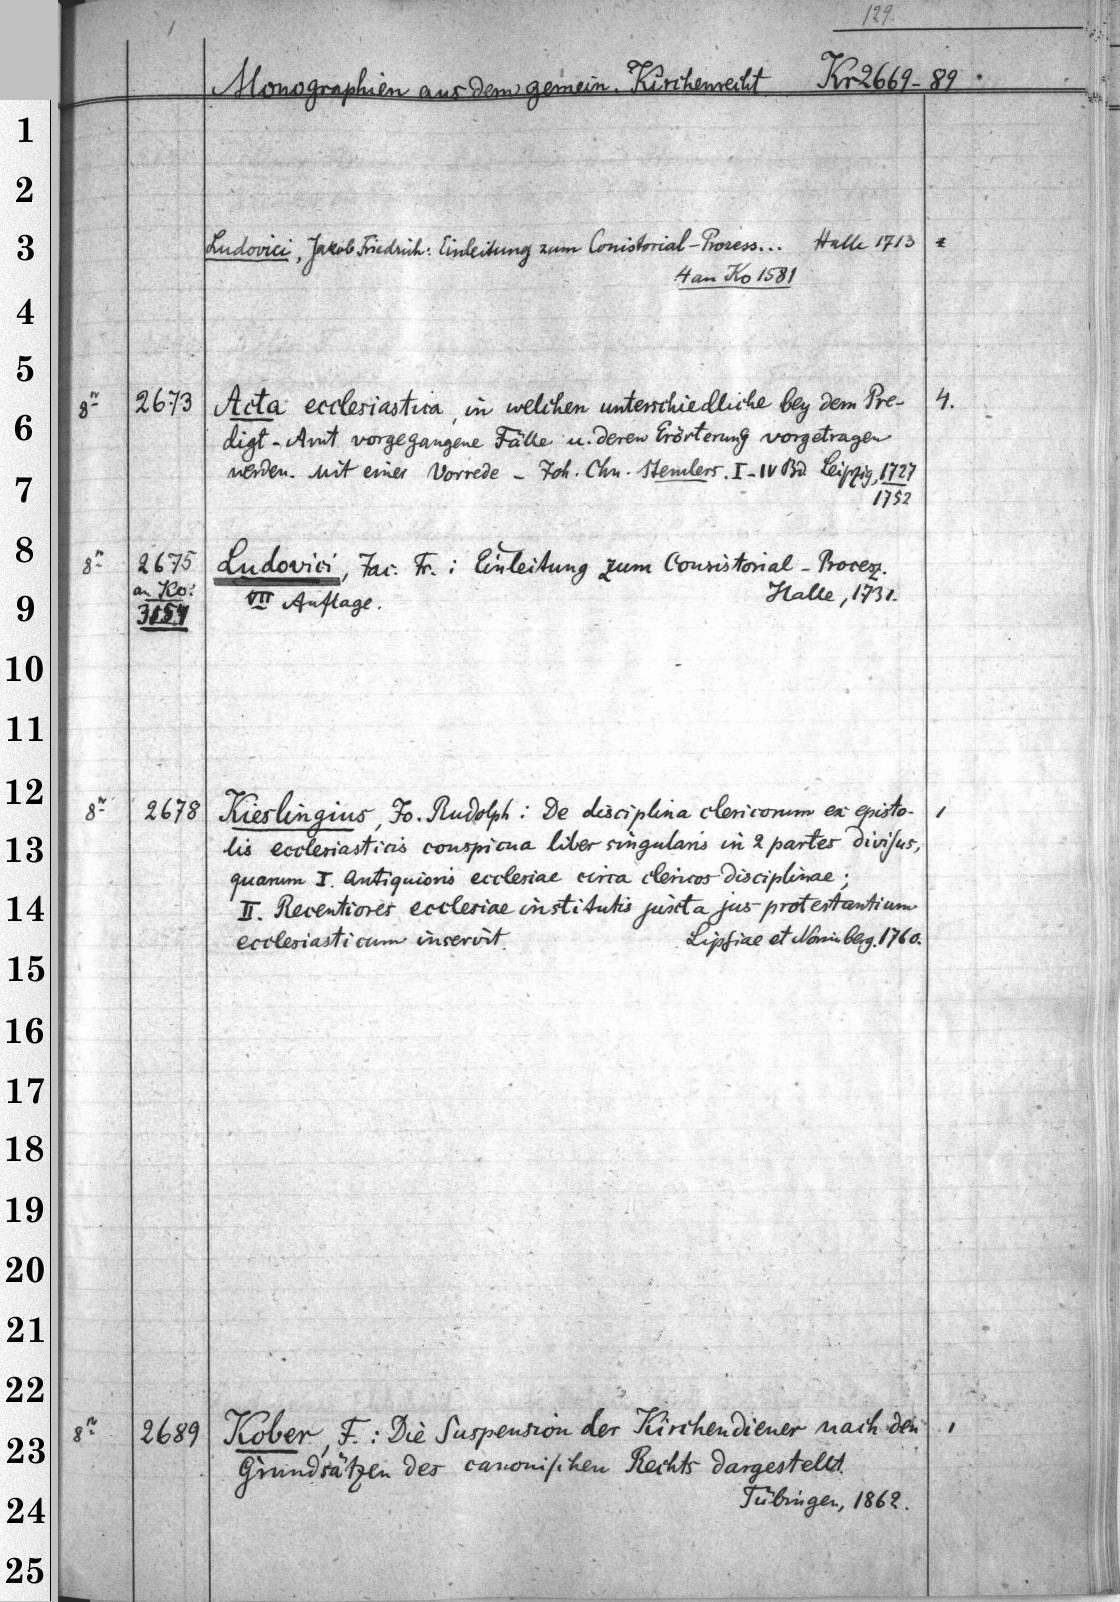 129.
Monographien aus dem gemein. Kirchenrecht Kr 2669-89.
1
2
3 Ludovici, Jakob Friedrich: Einleitung zum Conistorial-Prozess... Halle 1713
4 an Ko 1581
4
5
8º 2673 Acta ecclesiastica, in welchen unterschiedliche bey dem Pre- 4.
6 digt-Amt vorgegangene Fälle u. deren Erörterung vorgetragen
7 werden. Mit einer Vorrede - Joh. Chr. Stemlers. I-IV Bd Leipzig, 1727
1752
8 8º 2675 Ludovici, Jac. Fr.: Einleitung zum Consistorial-Process.
an Ko: VII Auflage. Halle, 1731.
9 3154
10
11
12
8º 2678 Kieslingius, Jo. Rudolph: De disciplina clericorum ex episto- 1
13 lis ecclesiasticis conspicua liber singularis in 2 partes divisus,
quarum I. Antiquioris ecclesiae circa clericos disciplinae;
14 II. Recentiores ecclesiae institutis juxta jus protestantium
ecclesiasticum inservit. Lipsiae et Norimberg. 1760.
15
16
17
18
19
20
21
22
8º 2689 Kober, F.: Die Suspension der Kirchendiener nach den 1
23 Grundsätzen des canonischen Rechts dargestellt.
24 Tübingen, 1862.
25